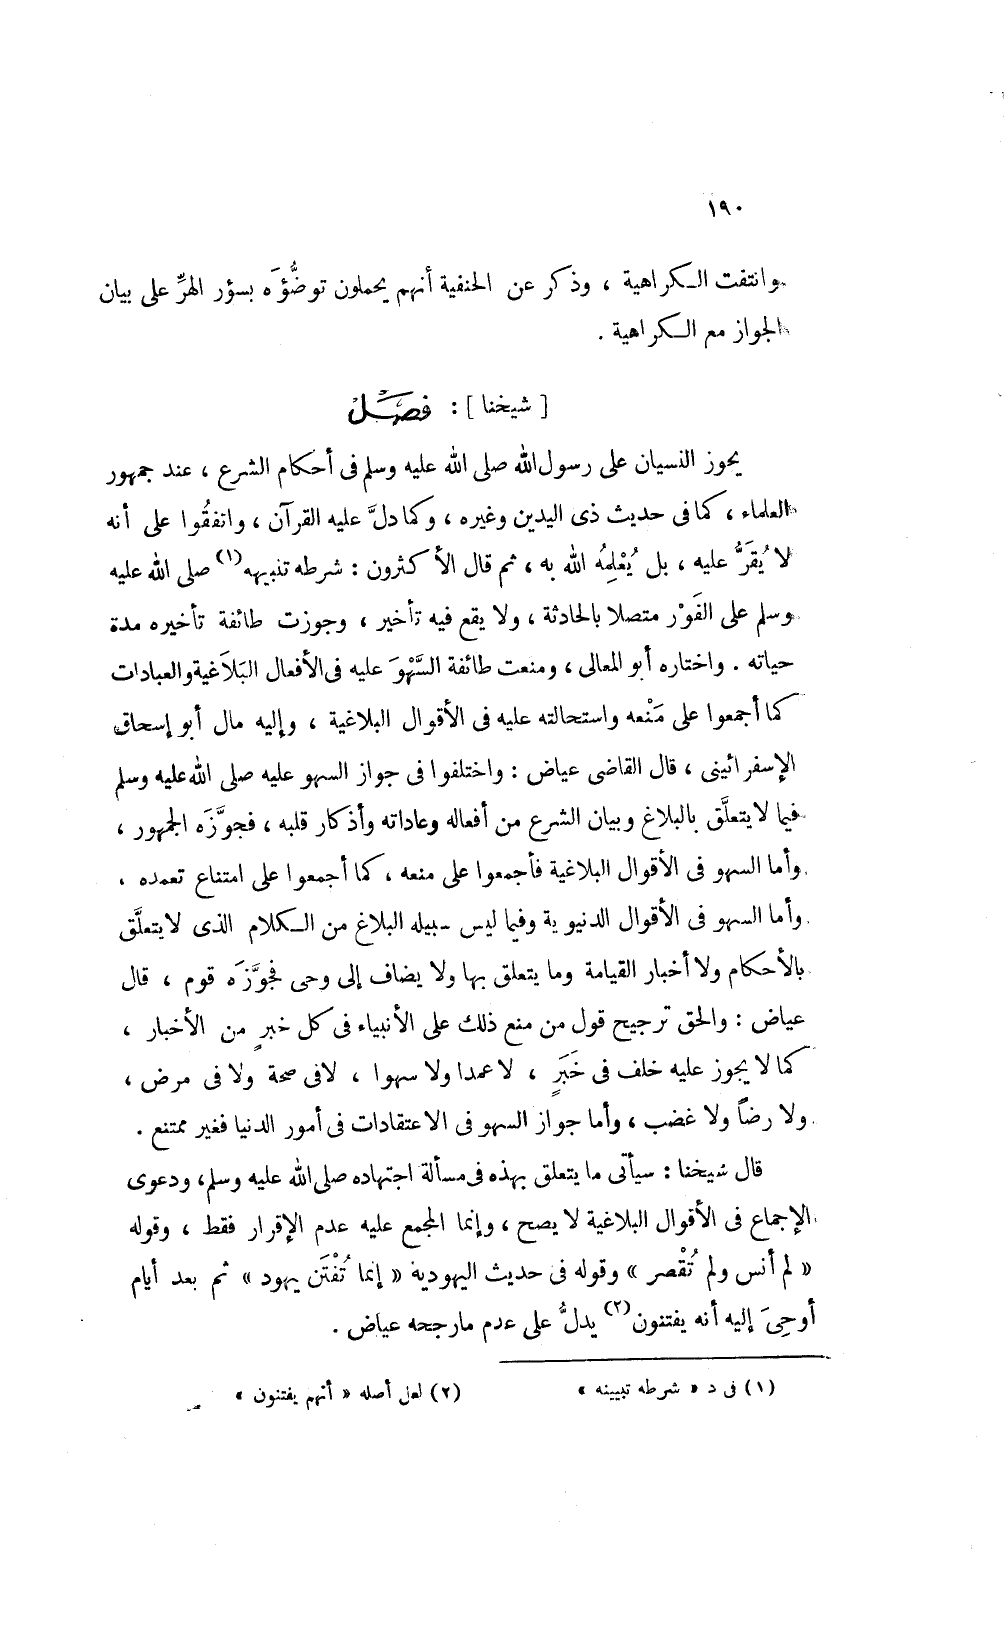 ١٩٠
وانتفت الكراهية ، وذكر عن الحنفية أنهم يحملون توضُّؤَه بسؤر الهرِّ على بيان
الجواز مع الكراهية .
[ شيخنا ] : فصل
يجوز النسيان على رسول الله صلى الله عليه وسلم فى أحكام الشرع ، عند جمهور
العلماء ، كما فى حديث ذى اليدين وغيره ، وكما دلَّ عليه القرآن ، واتفقُوا على أنه
لا يُقَرُّ عليه ، بل يُعْلِمُه الله به ، ثم قال الأكثرون : شرطه تنبيهه (١) صلى الله عليه
وسلم على الفَوْر متصلا بالحادثة ، ولا يقع فيه تأخير ، وجوزت طائفة تأخيره مدة
حياته . واختاره أبو المعالى ، ومنعت طائفة السَّهْوَ عليه فى الأفعال البَلاَغية والعبادات
كما أجمعوا على مَنْعه واستحالته عليه فى الأقوال البلاغية ، وإليه مال أبو إسحاق
الإسفرائينى ، قال القاضى عياض : واختلفوا فى جواز السهو عليه صلى الله عليه وسلم
فيما لا يتعلَّق بالبلاغ وبيان الشرع من أفعاله وعاداته وأذكار قلبه ، فجوَّزَه الجمهور ،
وأما السهو فى الأقوال البلاغية فأجمعوا على منعه ، كما أجمعوا على امتناع تعمده ،
وأما السهو فى الأقوال الدنيوية وفيما ليس سبيله البلاغ من الكلام الذى لا يتعلَّق
بالأحكام ولا أخبار القيامة وما يتعلق بها ولا يضاف إلى وحى فجوَّزَه قوم ، قال
عياض : والحق ترجيح قول من منع ذلك على الأنبياء فى كل خبرٍ من الأخبار ،
كما لا يجوز عليه خلف فى خَبَرٍ ، لا عمدا ولا سهوا ، لا فى صحة ولا فى مرض ،
ولا رضاً ولا غضب ، وأما جواز السهو فى الاعتقادات فى أمور الدنيا فغير ممتنع .
قال شيخنا : سيأتى ما يتعلق بهذه فى مسألة اجتهاده صلى الله عليه وسلم، ودعوى
الإجماع فى الأقوال البلاغية لا يصح ، وإنما المجمع عليه عدم الإقرار فقط ، وقوله
« لم أنس ولم تُقْصر » وقوله فى حديث اليهودية « إنما تُفْتَن يهود » ثم بعد أيام
أوحِىَ إليه أنه يفتنون (٢) يدلُّ على عدم ما رجحه عياض .
(١) فى د « شرطه تبيينه »
(٢) لعل أصله « أنهم يفتنون »